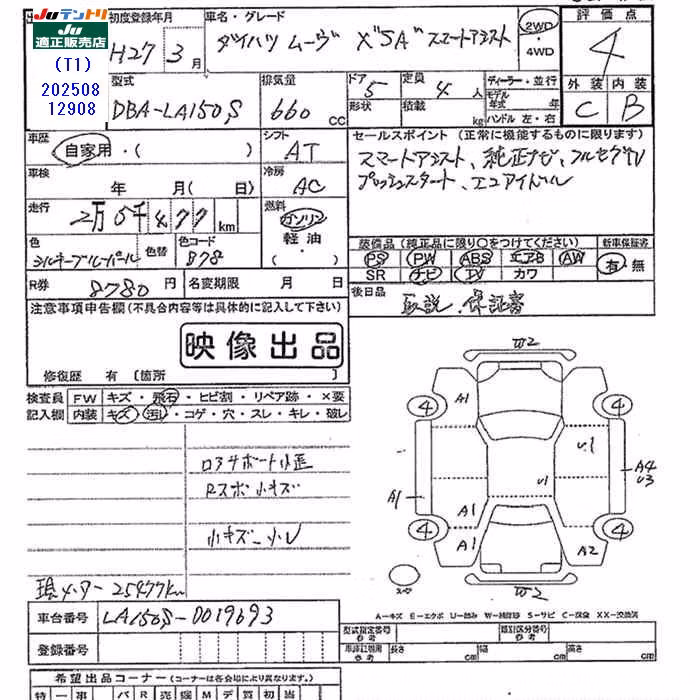 JUテントリ
JU
適正販売店
(T1)
202508
12908
初度登録年月
H27 3月
車名・グレード
ダイハツ ムーヴ X"SA" スマートアシスト
2WD
・4WD
評価点
4
外装 内装
C B
型式
DBA-LA150S
排気量
660 cc
ドア 5
形状
定員 4人
積載 kg
ディーラー・並行
モデル年式 年
ハンドル 左・右
車歴
自家用・( )
シフト
AT
セールスポイント (正常に機能するものに限ります)
スマートアシスト、純正ナビ、フルセグTV
プッシュスタート、エコアイドル
車検
年 月(日)
冷房
AC
走行
2万5千477km
燃料
ガソリン
軽油
・( )
色
シルキーブルーパール
色替
色コード
B78
装備品 (純正品に限り〇をつけてください)
新車保証書
PS PW ABS エアB AW
SR ナビ TV カワ
有・無
R券 8780円
名変期限 月 日
後日品
取説、保証書
注意事項申告欄(不具合内容等は具体的に記入して下さい)
映像出品
修復歴 有 〔箇所
検査員
記入欄
FW キズ・飛石・ヒビ割・リペア跡・×要
内装 キズ・汚レ・コゲ・穴・スレ・キレ・破レ
ロアサポート小歪
Rスポ小キズ
小キズ−小U
現メーター25477km
W2
A1
4
4
U1
U1
A1
A4
U3
A1
A1
A2
4
4
スペア
W2
A−キズ E−エクボ U−凹み W−補修跡 S−サビ C−腐食 XX−交換済
車台番号 LA150S-0019693
登録番号
型式指定番号
参考
類別区分番号
参考
車検証明細
参考
長さ cm
幅 cm
高さ cm
希望出品コーナー (コーナーは各会場により異なります。)
特 一 事 パ R 売 磁 M デ 買 初 当